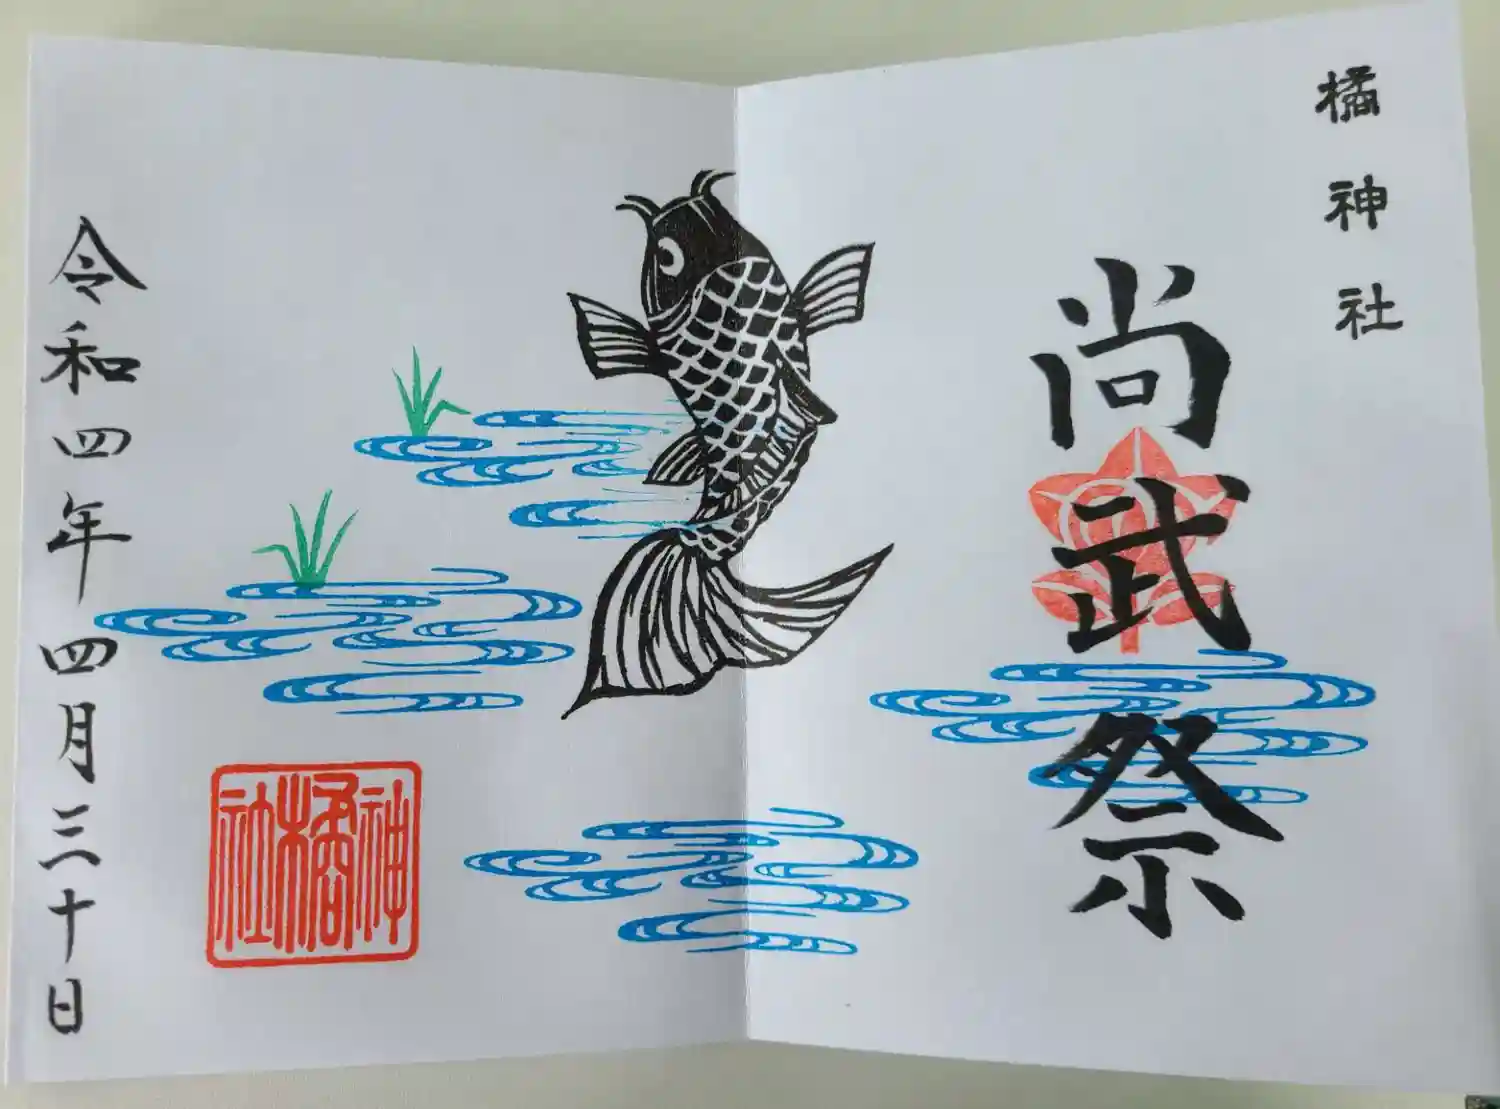 橘神社
尚武祭
令和四年四月三十日
神橘社